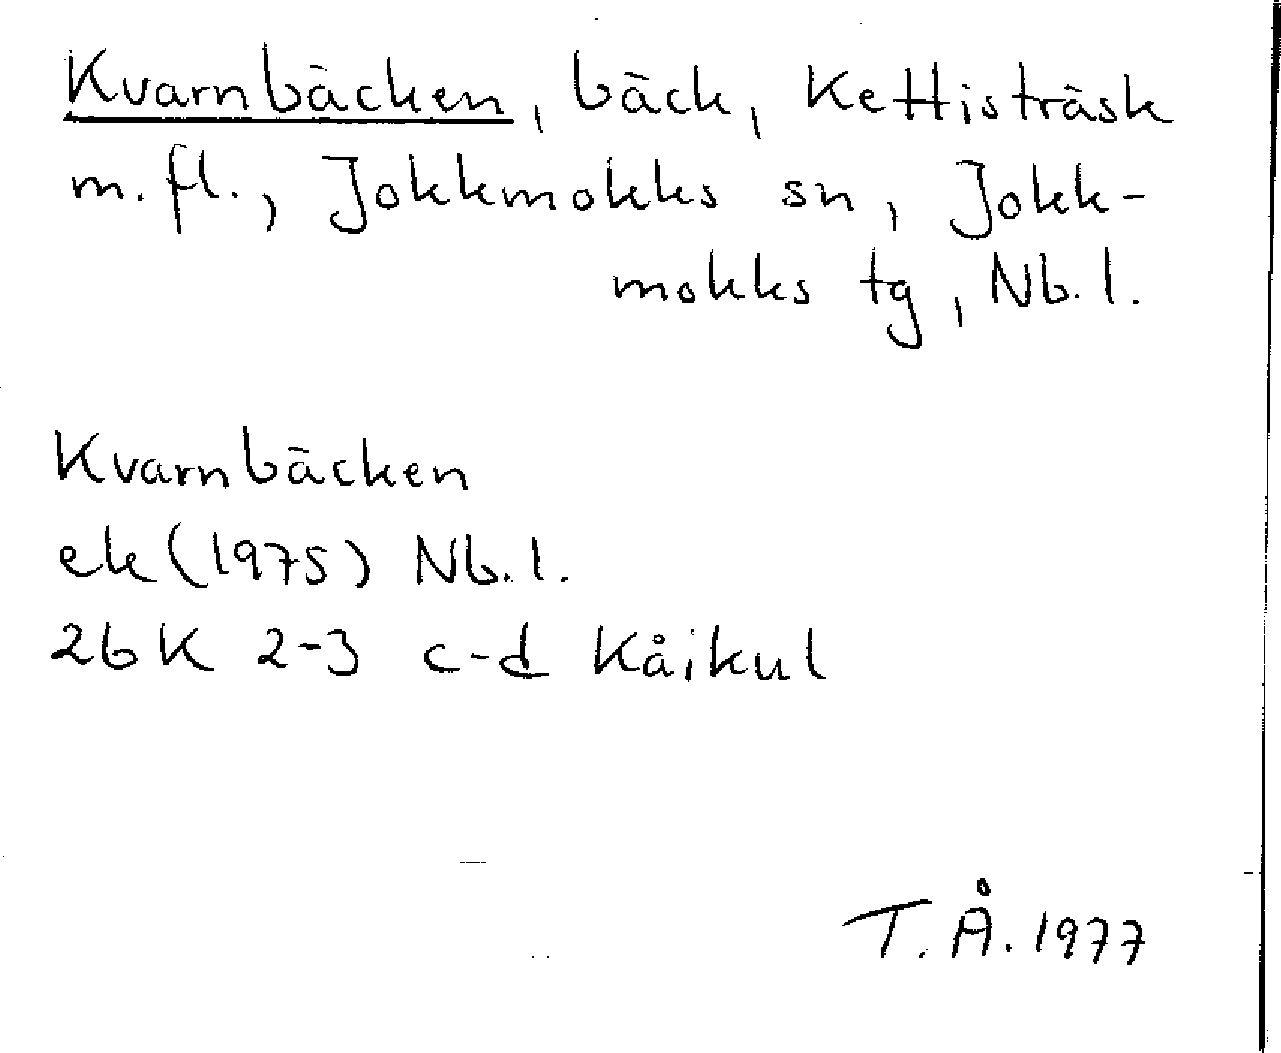 Kvarnbäcken, bäck, Kettisträsk
m.fl., Jokkmokks sn, Jokk-
mokks tg, Nb.l.
Kvarnbäcken
ek (1975) Nb.l.
26K 2-3 c-d Kåikul
T.Å. 1977